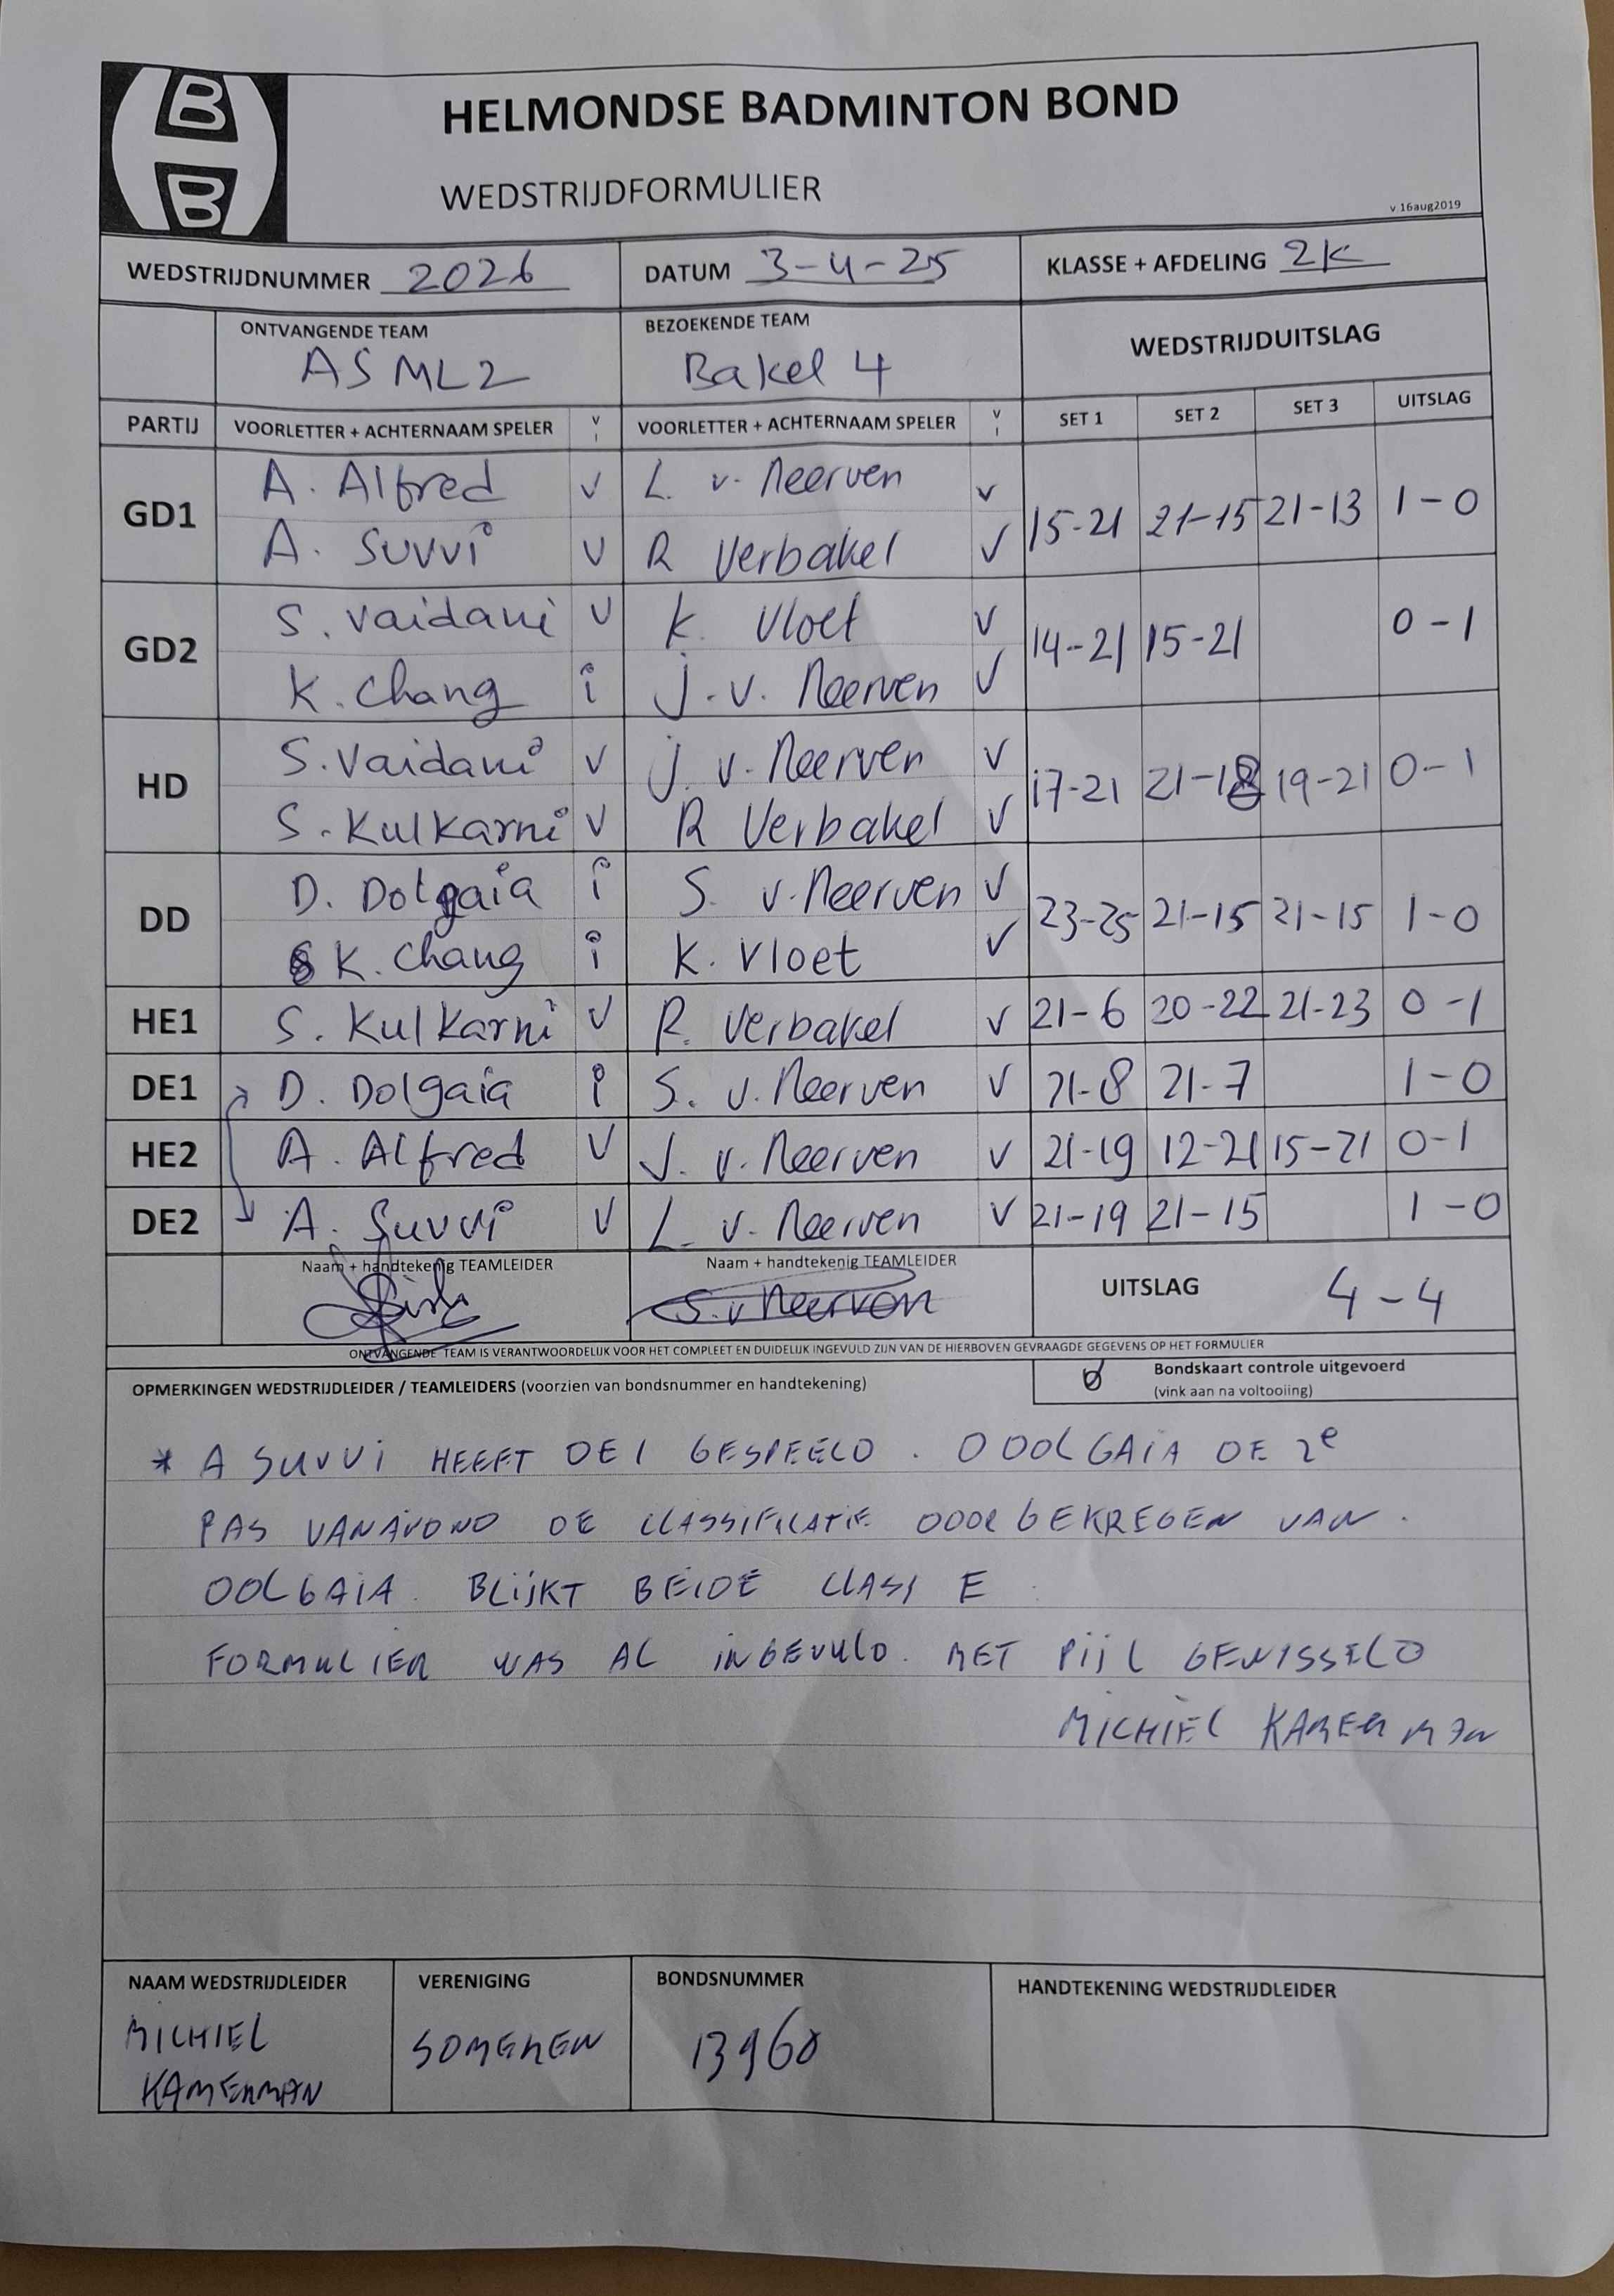 B
B
HELMONDSE BADMINTON BOND
WEDSTRIJDFORMULIER
v.16aug2019
WEDSTRIJDNUMMER 2026 DATUM 3-4-25 KLASSE + AFDELING 2K
ONTVANGENDE TEAM BEZOEKENDE TEAM WEDSTRIJDUITSLAG
ASML2 Bakel 4
PARTIJ VOORLETTER + ACHTERNAAM SPELER V I VOORLETTER + ACHTERNAAM SPELER V I SET 1 SET 2 SET 3 UITSLAG
GD1 A. Alfred v L. v. Neerven v 15-21 21-15 21-13 1-0
A. Suvvi v R Verbakel v
GD2 S. Vaidani v K. Vloet v 14-21 15-21 0-1
K. Chang i J. v. Neerven v
HD S. Vaidani v J v. Neerven v 17-21 21-18 19-21 0-1
S. Kulkarni v R Verbakel v
DD D. Dolgaia i S. v. Neerven v 23-25 21-15 21-15 1-0
K. Chang i K. Vloet v
HE1 S. Kulkarni v R. Verbakel v 21-6 20-22 21-23 0-1
DE1 D. Dolgaia i S. v. Neerven v 21-8 21-7 1-0
HE2 A. Alfred v J. v. Neerven v 21-19 12-21 15-21 0-1
DE2 A. Suvvi v L. v. Neerven v 21-19 21-15 1-0
Naam + handtekenig TEAMLEIDER Naam + handtekenig TEAMLEIDER UITSLAG 4-4
S. v Neerven
ONTVANGENDE TEAM IS VERANTWOORDELIJK VOOR HET COMPLEET EN DUIDELIJK INGEVULD ZIJN VAN DE HIERBOVEN GEVRAAGDE GEGEVENS OP HET FORMULIER
OPMERKINGEN WEDSTRIJDLEIDER / TEAMLEIDERS (voorzien van bondsnummer en handtekening) Bondskaart controle uitgevoerd
(vink aan na voltooiing)
* A SUVVI HEEFT DE1 GESPEELD. D DOLGAIA DE 2e
PAS VANAVOND DE CLASSIFICATIE DOORGEKREGEN VAN.
DOLGAIA. BLIJKT BEIDE CLASS E
FORMULIER WAS AL INGEVULD. MET PIJL GEWISSELD
MICHIEL KAMERMAN
NAAM WEDSTRIJDLEIDER VERENIGING BONDSNUMMER HANDTEKENING WEDSTRIJDLEIDER
MICHIEL SOMEREN 13960
KAMERMAN